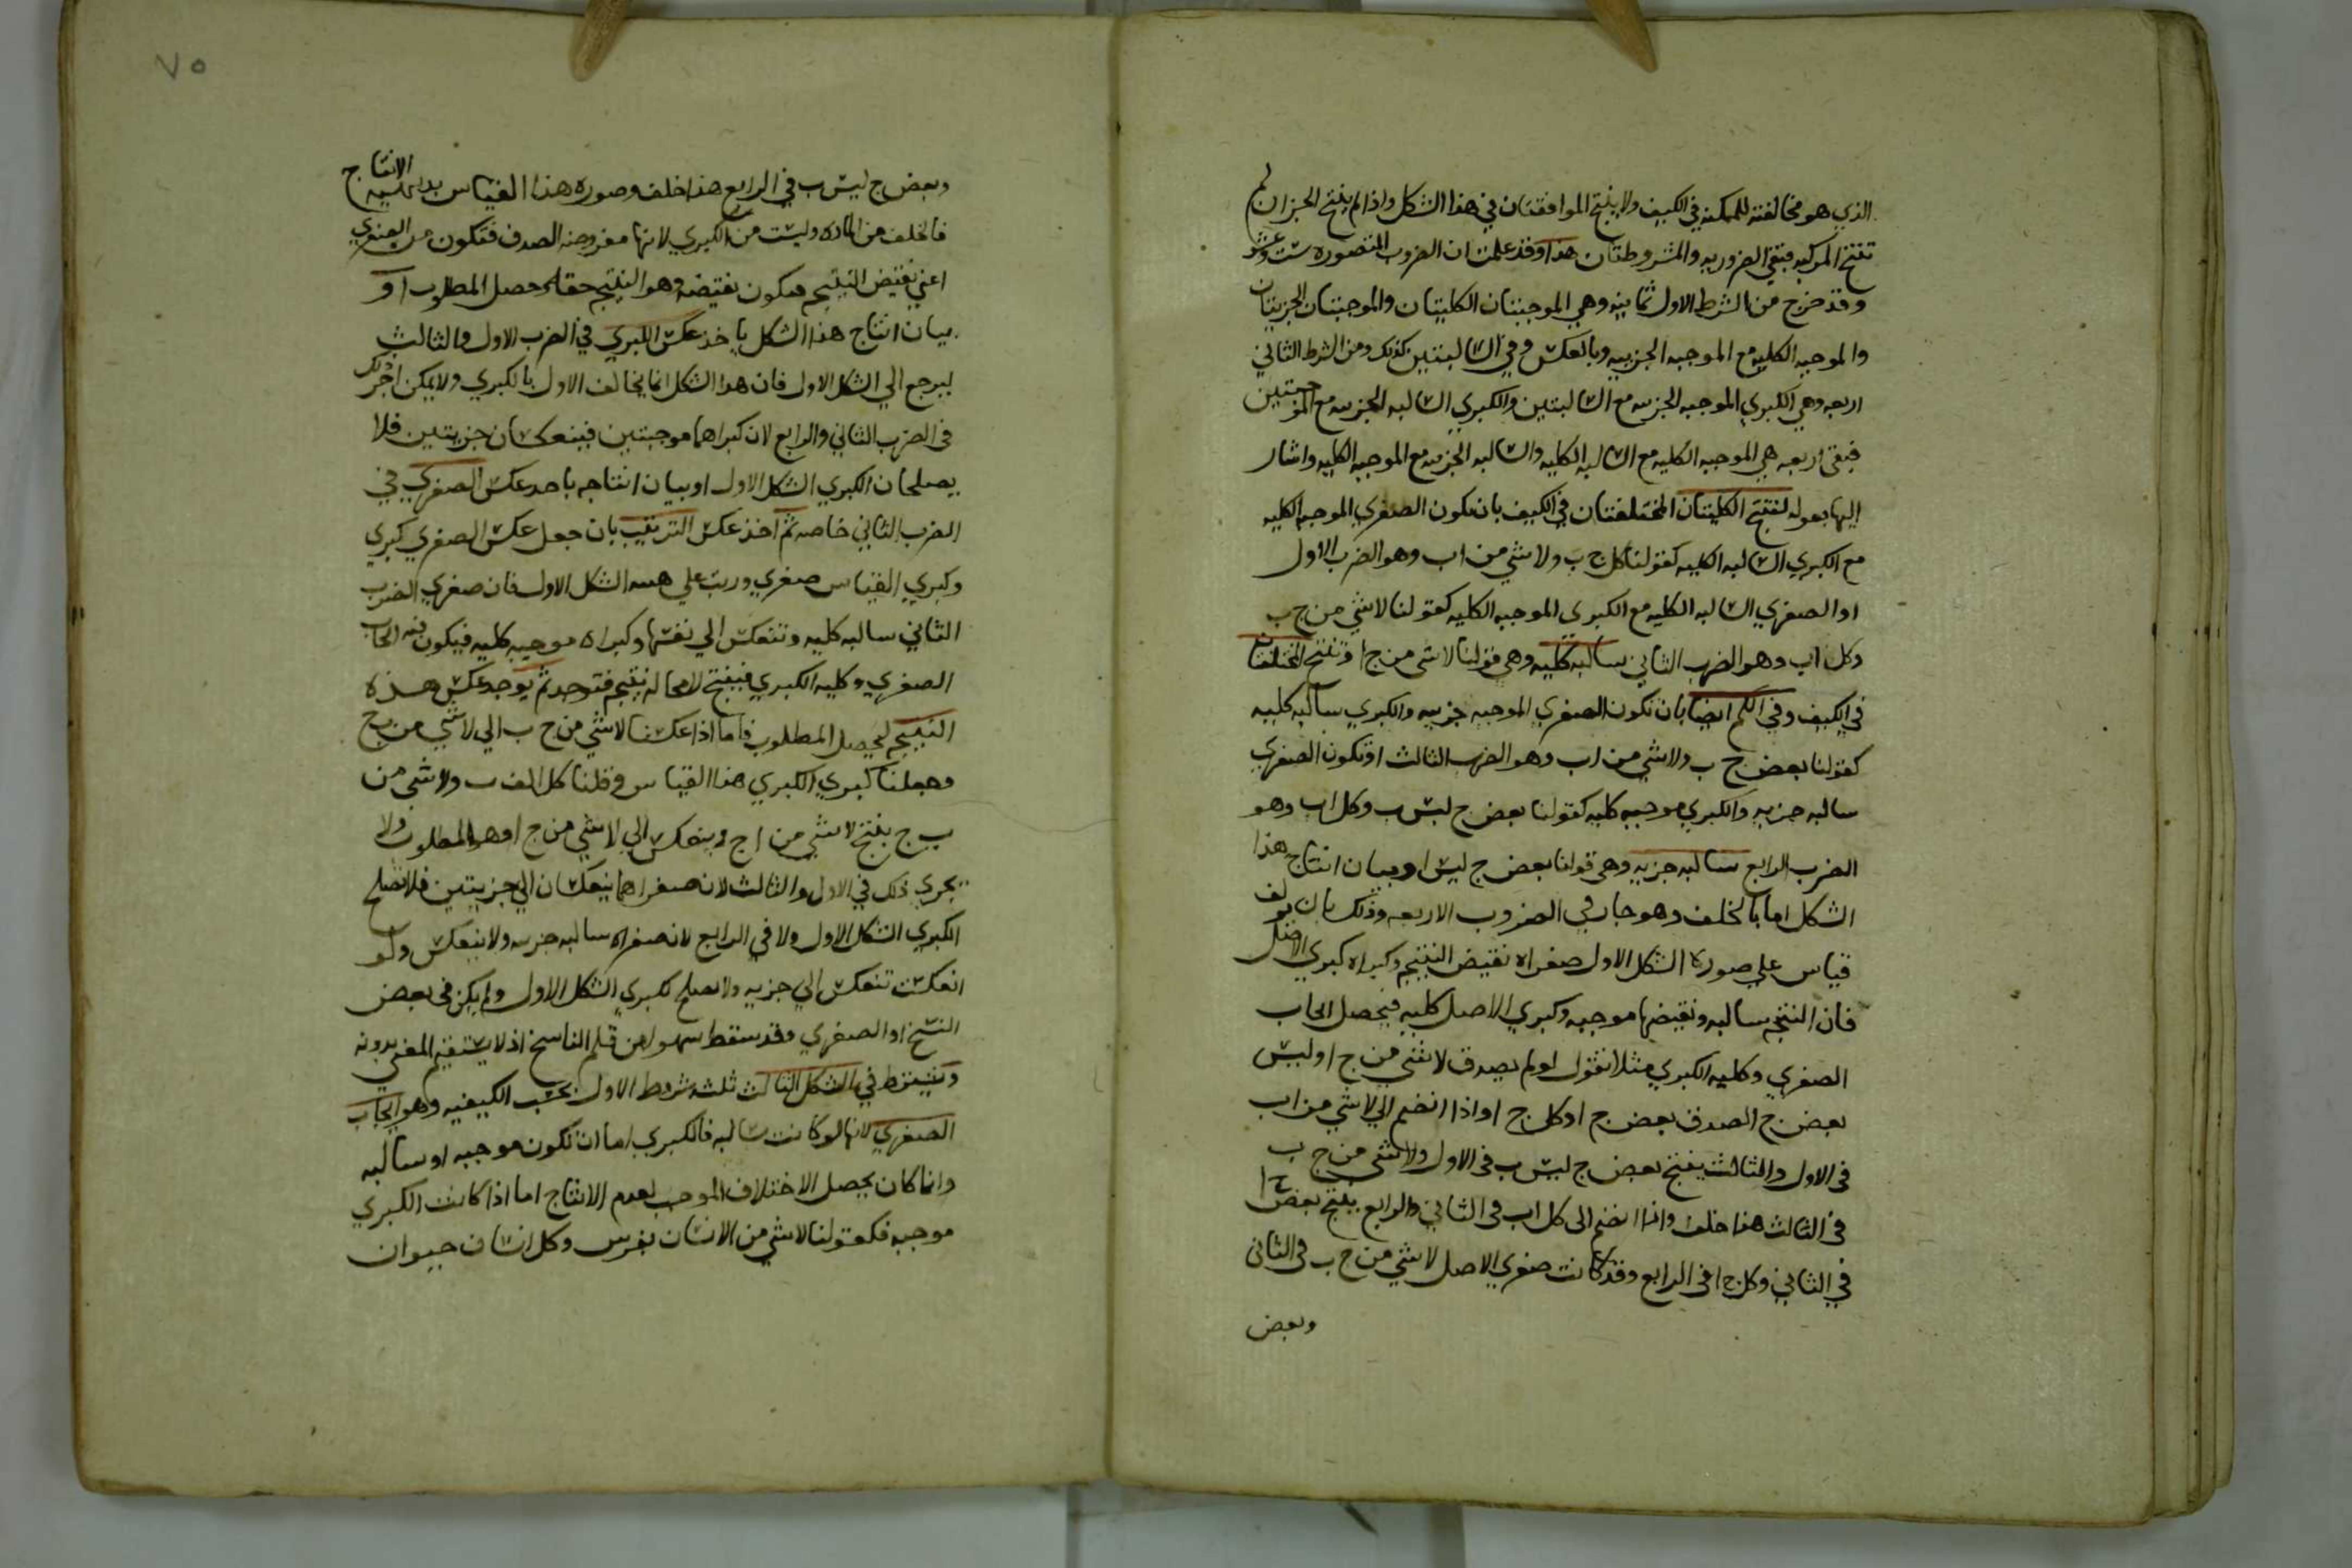 الذي هو مخالفته للممكنة في الكيف ولا ينتج الموافقتان في هذا الشكل واذا لم ينتج الجزان لم
تنتج المركبه فبقي الضروريه والمشروطتان هذا وقد علمت ان الضروب المتصوره ستة عشر
وقد خرج من الشرط الاول ثمانيه وهي الموجبتان الكليتان والموجبتان الجزيتان
والموجبه الكليه مع الموجبه الجزييه وبالعكس وفي السالبتين كذلك ومن الشرط الثاني
اربعه وهي الكبري الموجبه الجزييه مع السالبتين والكبري السالبه الجزييه مع الموجبتين
فبقي اربعه هي الموجبه الكليه مع السالبه الكليه والسالبه الجزييه مع الموجبه الكليه واشار
اليها بقوله لتنتج الكليتان المختلفتان في الكيف بان تكون الصغري الموجبه الكليه
مع الكبري السالبه الكليه كقولنا كل ج ب ولا شي من اب وهو الضرب الاول
او الصغري السالبه الكليه مع الكبرى الموجبه الكليه كقولنا لا شي من ج ب
وكل اب وهو الضرب الثاني سالبه كليه وهي قولنا لا شي من ج ا وتنتج المختلفتان
في الكيف وفي الكم ايضا بان تكون الصغري الموجبه جزييه والكبري سالبه كليه
كقولنا بعض ج ب ولا شي من اب وهو الضرب الثالث او تكون الصغري
سالبه جزيه والكبري موجبه كليه كقولنا بعض ج ليس ب وكل اب وهو
الضرب الرابع سالبه جزيه وهي قولنا بعض ج ليس ا وبيان انتاج هذا
الشكل اما بالخلف وهو جار في الضروب الاربعه وذلك بان يولف
قياس علي صورة الشكل الاول صغراه نقيض النتيجه وكبراه كبري الاصل
فان النتيجه سالبه ونقيضها موجبه وكبري الاصل كليه فيحصل ايجاب
الصغري وكليه الكبري مثلا نقول لو لم يصدق لا شي من ج ا وليس
بعض ج الصدق بعض ج ا وكل ج ا واذا انضم الي لا شي من اب
في الاول والثالث ينتج بعض ج ليس ب في الاول ولا شي من ج ب
في الثالث هذا خلف واذا انضم الى كل اب في الثاني والرابع ينتج بعض ج ا
في الثاني وكل ج ا في الرابع وقد كانت صغري الاصل لا شي من ج ب في الثاني
وبعض
٧٥
وبعض ج ليس ب في الرابع هذا خلف وصوره هذا القياس بديهيه الانتاج
فالخلف من الماده وليست من الكبري لانها مفروضه الصدق فتكون من الصغري
اعني نقيض النتيجه فيكون نقيضه وهو النتيجه حقا وحصل المطلوب او
بيان انتاج هذا الشكل باخذ عكس الكبري في الضرب الاول والثالث
ليرجع الي الشكل الاول فان هذا الشكل انما يخالف الاول بالكبري ولا يمكن اجر ذلك
في الضرب الثاني والرابع لان كبراهما موجبتين فينعكسان جزيتين فلا
يصلحان الكبري الشكل الاول او بيان انتاجه باخذ عكس الصغري في
الضرب الثاني خاصه ثم اخذ عكس الترتيب بان جعل عكس الصغري كبري
وكبري القياس صغري ورتب علي هيئه الشكل الاول فان صغري الضرب
الثاني سالبه كليه وتنعكس الي نفسها وكبراه موجبه كليه فيكون فيه ايجاب
الصغري وكليه الكبري فينتج لا محاله نتيجه فتوخذ ثم يوخذ عكس هذه
النتيجه ليحصل المطلوب فاما اذا عكسنا لا شي من ج ب الي لا شي من ب ج
وجعلنا كبري الكبري هذا القياس وقلنا كل الف ب ولا شي من
ب ج ينتج لا شي من ا ج وينعكس الي لا شي من ج ا وهو المطلوب ولا
يجري ذلك في الاول والثالث لان صغراهما ينعكسان الي جزيتين فلا تصلح
الكبري الشكل الاول ولا في الرابع لان صغراه سالبه جزيه ولا ينعكس ولو
انعكست تنعكس الي جزيه ولا تصلح لكبري الشكل الاول ولم يكن في بعض
النسخ او الصغري وقد سقط سهوا من قلم الناسخ اذ لا يستقيم المعني بدونه
ويشترط في الشكل الثالث ثلثه شروط الاول بحسب الكيفيه وهو ايجاب
الصغري لانها لو كانت سالبه فالكبري اما ان تكون موجبه او سالبه
وانما كان يحصل الاختلاف الموجب لعدم الانتاج اما اذا كانت الكبري
موجبه فكقولنا لا شي من الانسان بفرس وكل انسان حيوان